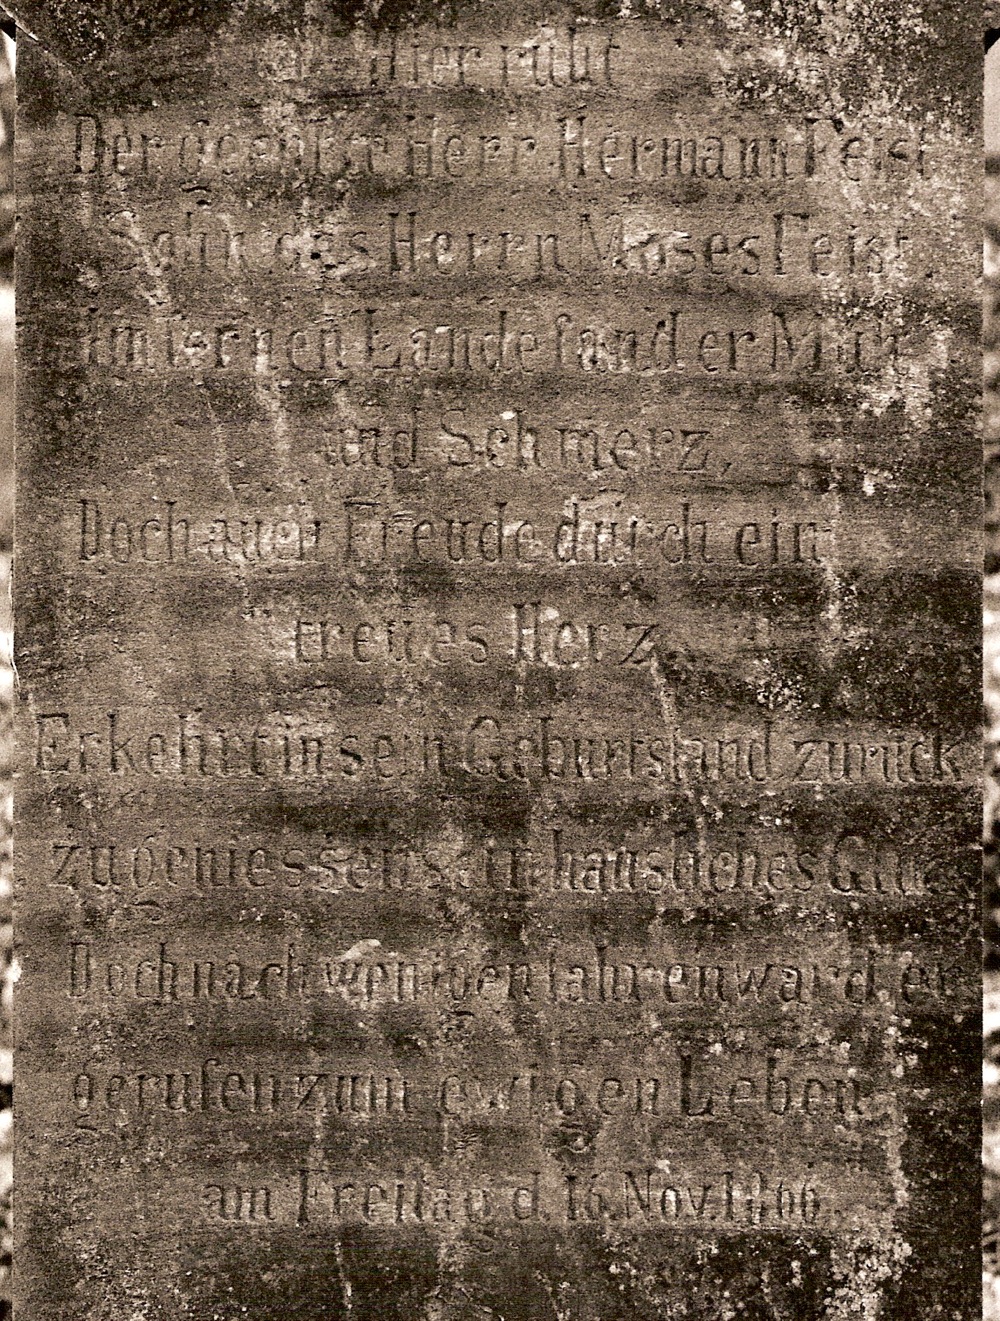 Hier ruht
Der geehrter Herr Hermann Feist
Sohn des Herrn Moses Feist.
im fernen Lande fand er Müh
und Schmerz,
Doch auch Freude durch ein
treues Herz,
Er kehrt in sein Geburtsland zurück
zu geniessen ein häusliches Glück
Doch nach wenigen Jahren ward er
gerufen zum ewigen Leben
am Freitag d 16. Nov. 1866.